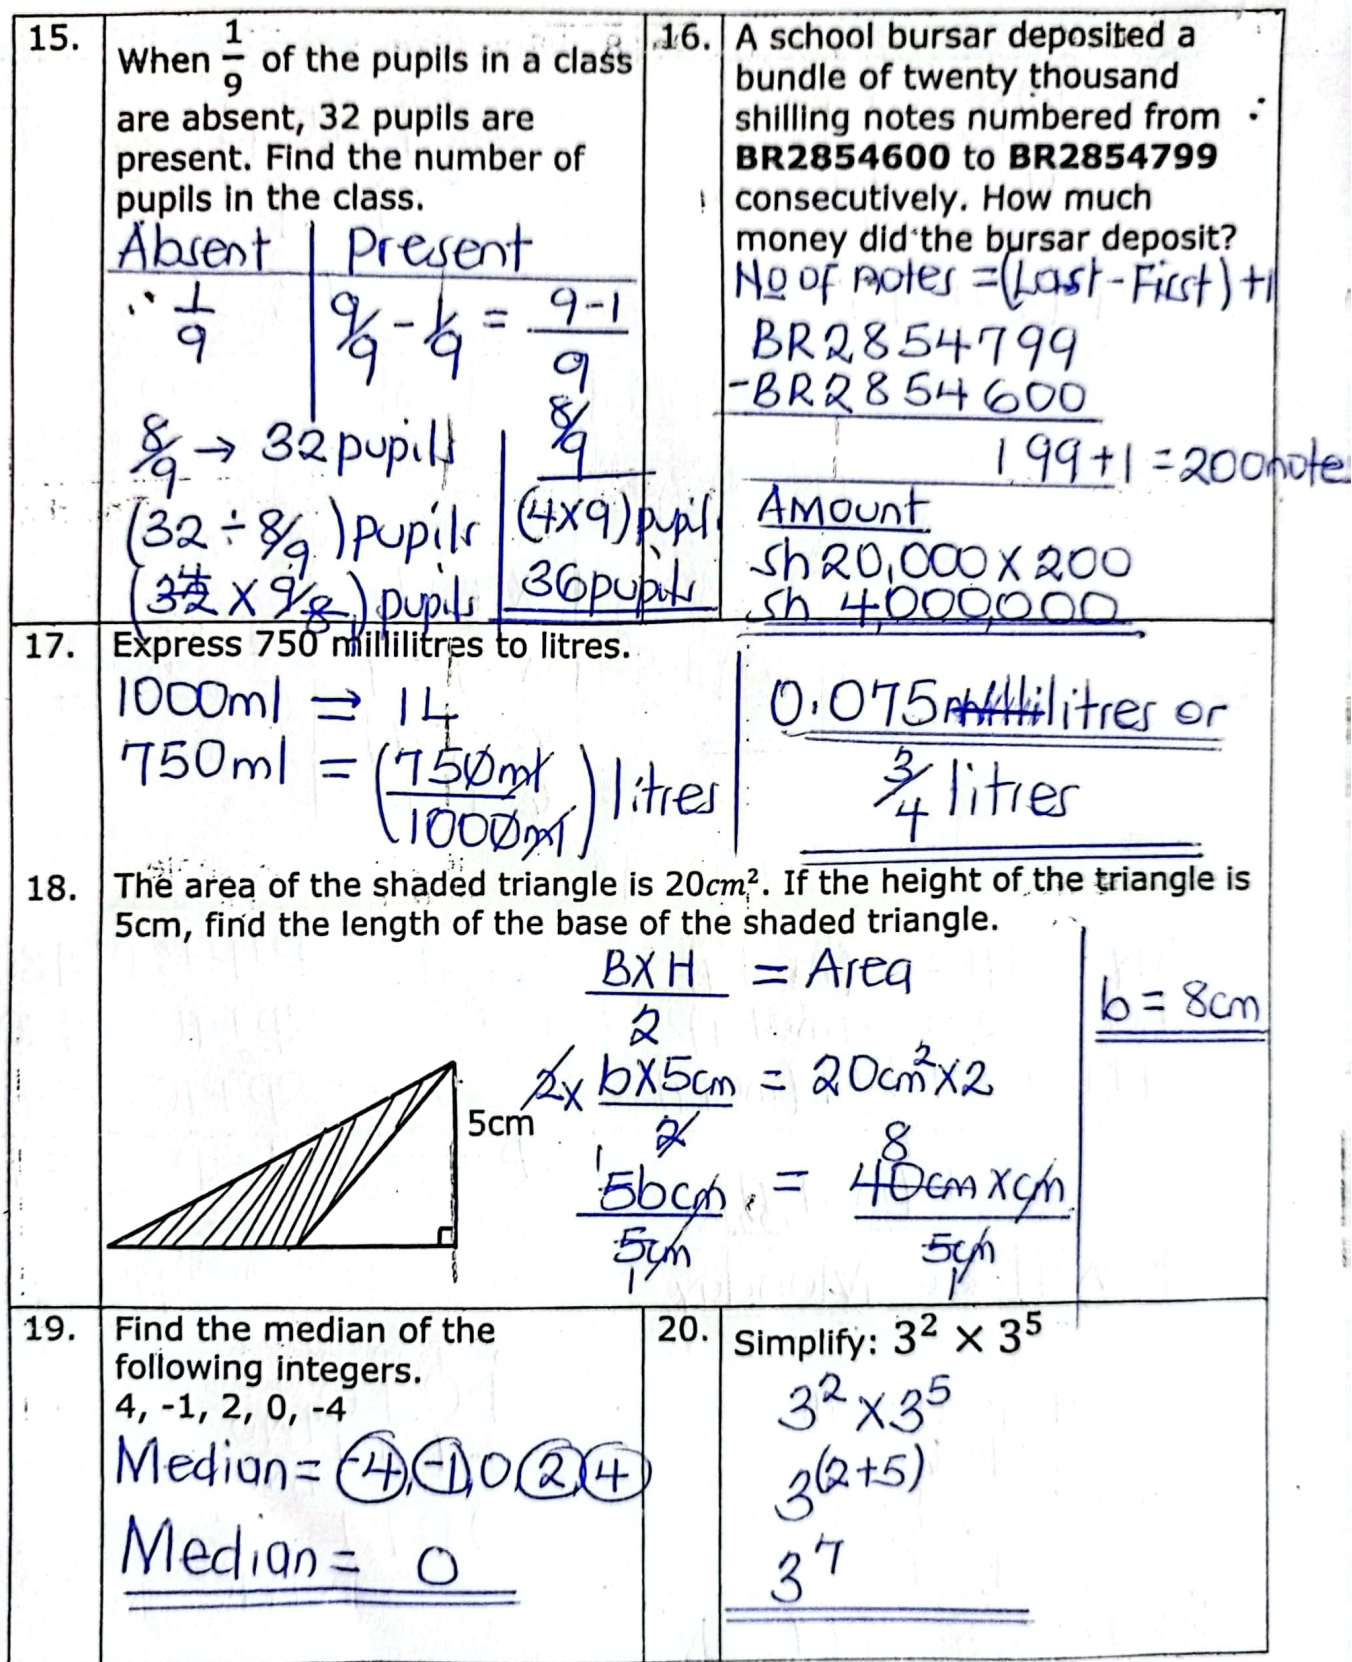 15. When 1/9 of the pupils in a class
are absent, 32 pupils are
present. Find the number of
pupils in the class.
Absent | Present
∴ 1/9 | 9/9 - 1/9 = 9-1/9
8/9
8/9 → 32 pupils
(32 ÷ 8/9) pupils
(32 4 x 9/8) pupils
(4x9) pupils
36 pupils
16. A school bursar deposited a
bundle of twenty thousand
shilling notes numbered from
BR2854600 to BR2854799
consecutively. How much
money did the bursar deposit?
No of notes = (Last - First) +1
BR2854799
-BR2854600
199+1 = 200 note
Amount
Sh 20,000 x 200
Sh 4,000,000
17. Express 750 millilitres to litres.
1000ml ⇒ 1L
750ml = (750ml/1000ml) litres
0.075 litres or
3/4 litres
18. The area of the shaded triangle is 20cm². If the height of the triangle is
5cm, find the length of the base of the shaded triangle.
BXH/2 = Area
2x bx5cm/2 = 20cm²x2
1 5bcm/5cm 1 = 8 40cm x cm/5cm 1
b = 8cm
5cm
19. Find the median of the
following integers.
4, -1, 2, 0, -4
Median = -4, -1, 0, 2, 4
Median = 0
20. Simplify: 3² × 3⁵
3² x 3⁵
3^(2+5)
3⁷